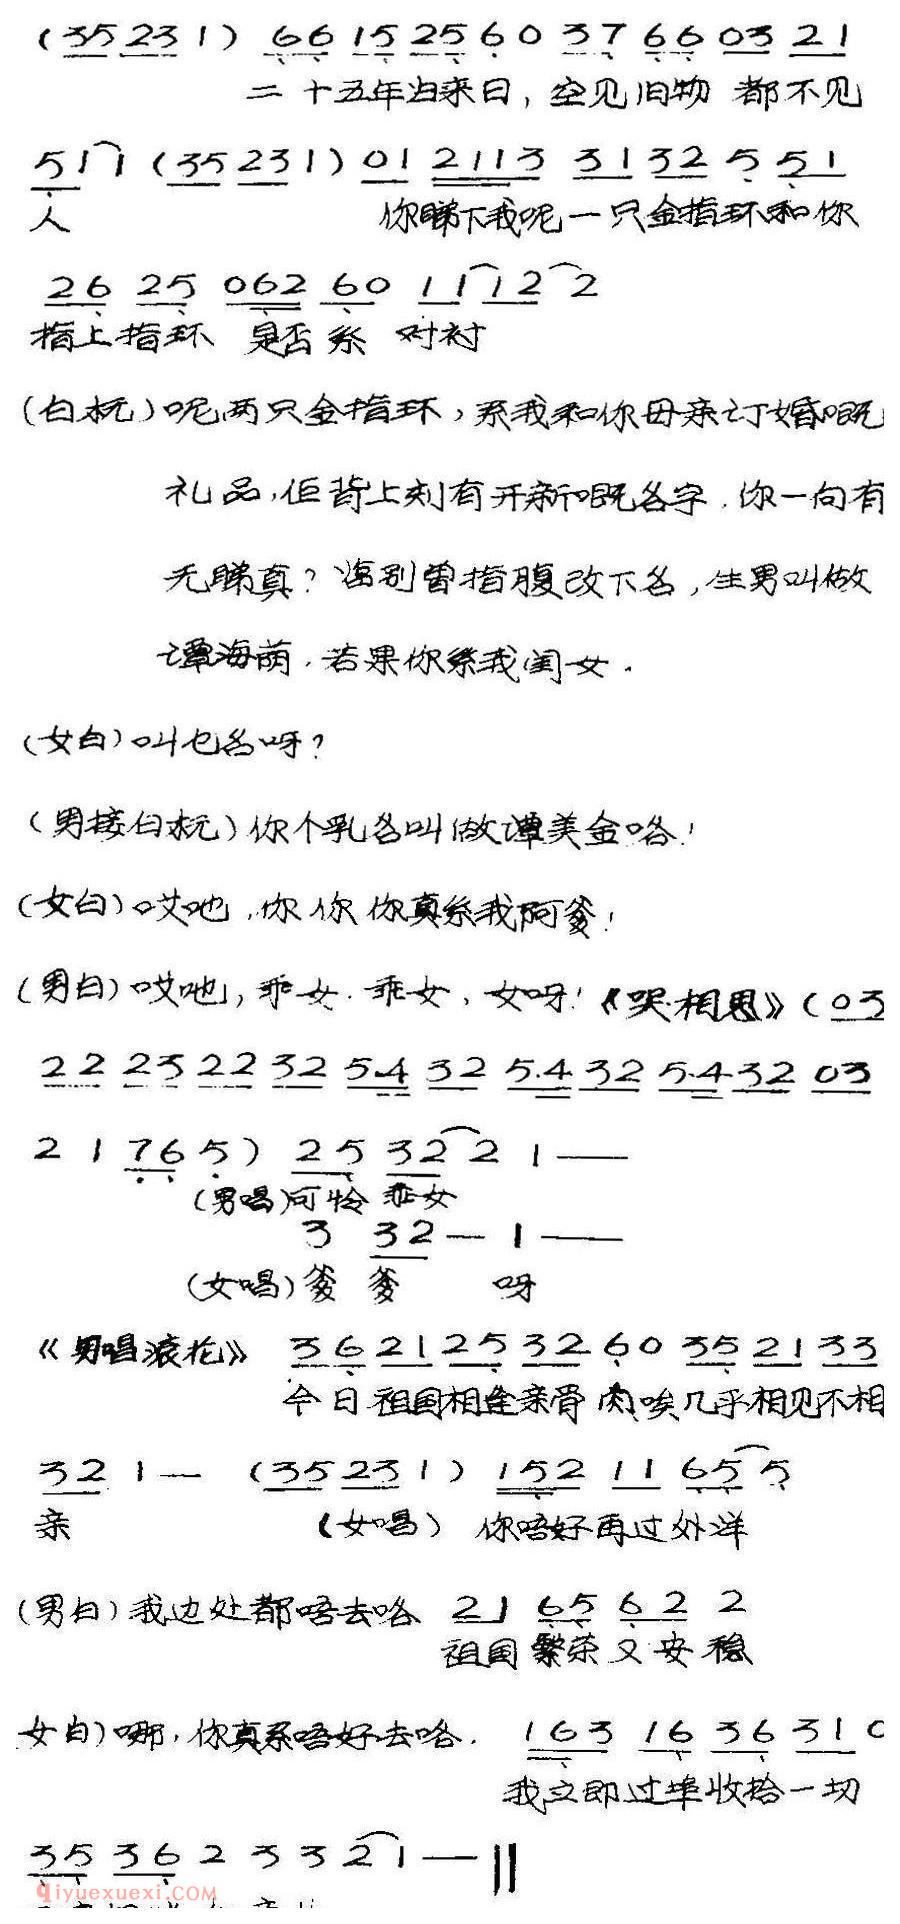 (35 231) 66 15 25 60 37 66 03 21
二十五年归来日，空见旧物 都不见
51 1 (35 231) 01 2113 3132 5 51
人 你睇下我呢一只金指环和你
26 25 062 60 11 12 2
指上指环 是否系 对衬
(白杬) 呢两只金指环，系我和你母亲订婚嘅
礼品，佢背上刻有开新嘅名字．你一向有
无睇真？ 别曾指腹改下名，生男叫做
谭海荫．若果你系我闺女．
(女白) 叫乜名呀？
(男接白杬) 你个乳名叫做谭美金咯！
(女白) 哎吔，你你你真系我阿爹！
(男白) 哎吔，乖女．乖女，女呀！《哭相思》(03
22 23 22 32 5.4 32 5.4 32 5.4 32 03
2 1 76 5) 25 32 2 1 —
(男唱)可怜 乖女
3 32 — 1 —
(女唱) 爹 爹 呀
《男唱滚花》 36 21 25 32 60 35 21 33
今日祖国相逢亲骨肉唉几乎相见不相
32 1 — (35 231) 152 11 65 5
亲 (女唱) 你唔好再过外洋
(男白) 我边处都唔去咯 21 65 62 2
祖国 繁荣 又安 稳
女白) 哪，你真系唔好去咯． 163 16 36 31 0
我立即过埠收拾一切
35 36 2 3 3 2 1 —
qiyuexuexi.COM